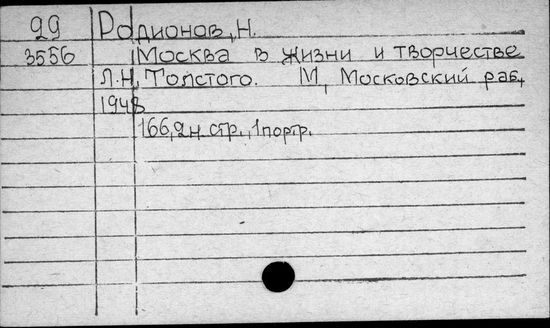 99 Родионов, Н.
3556 Москва в жизни и творчестве
Л.Н. Толстого. М, Московский раб.,
1948
166,2 н стр., 1 портр.